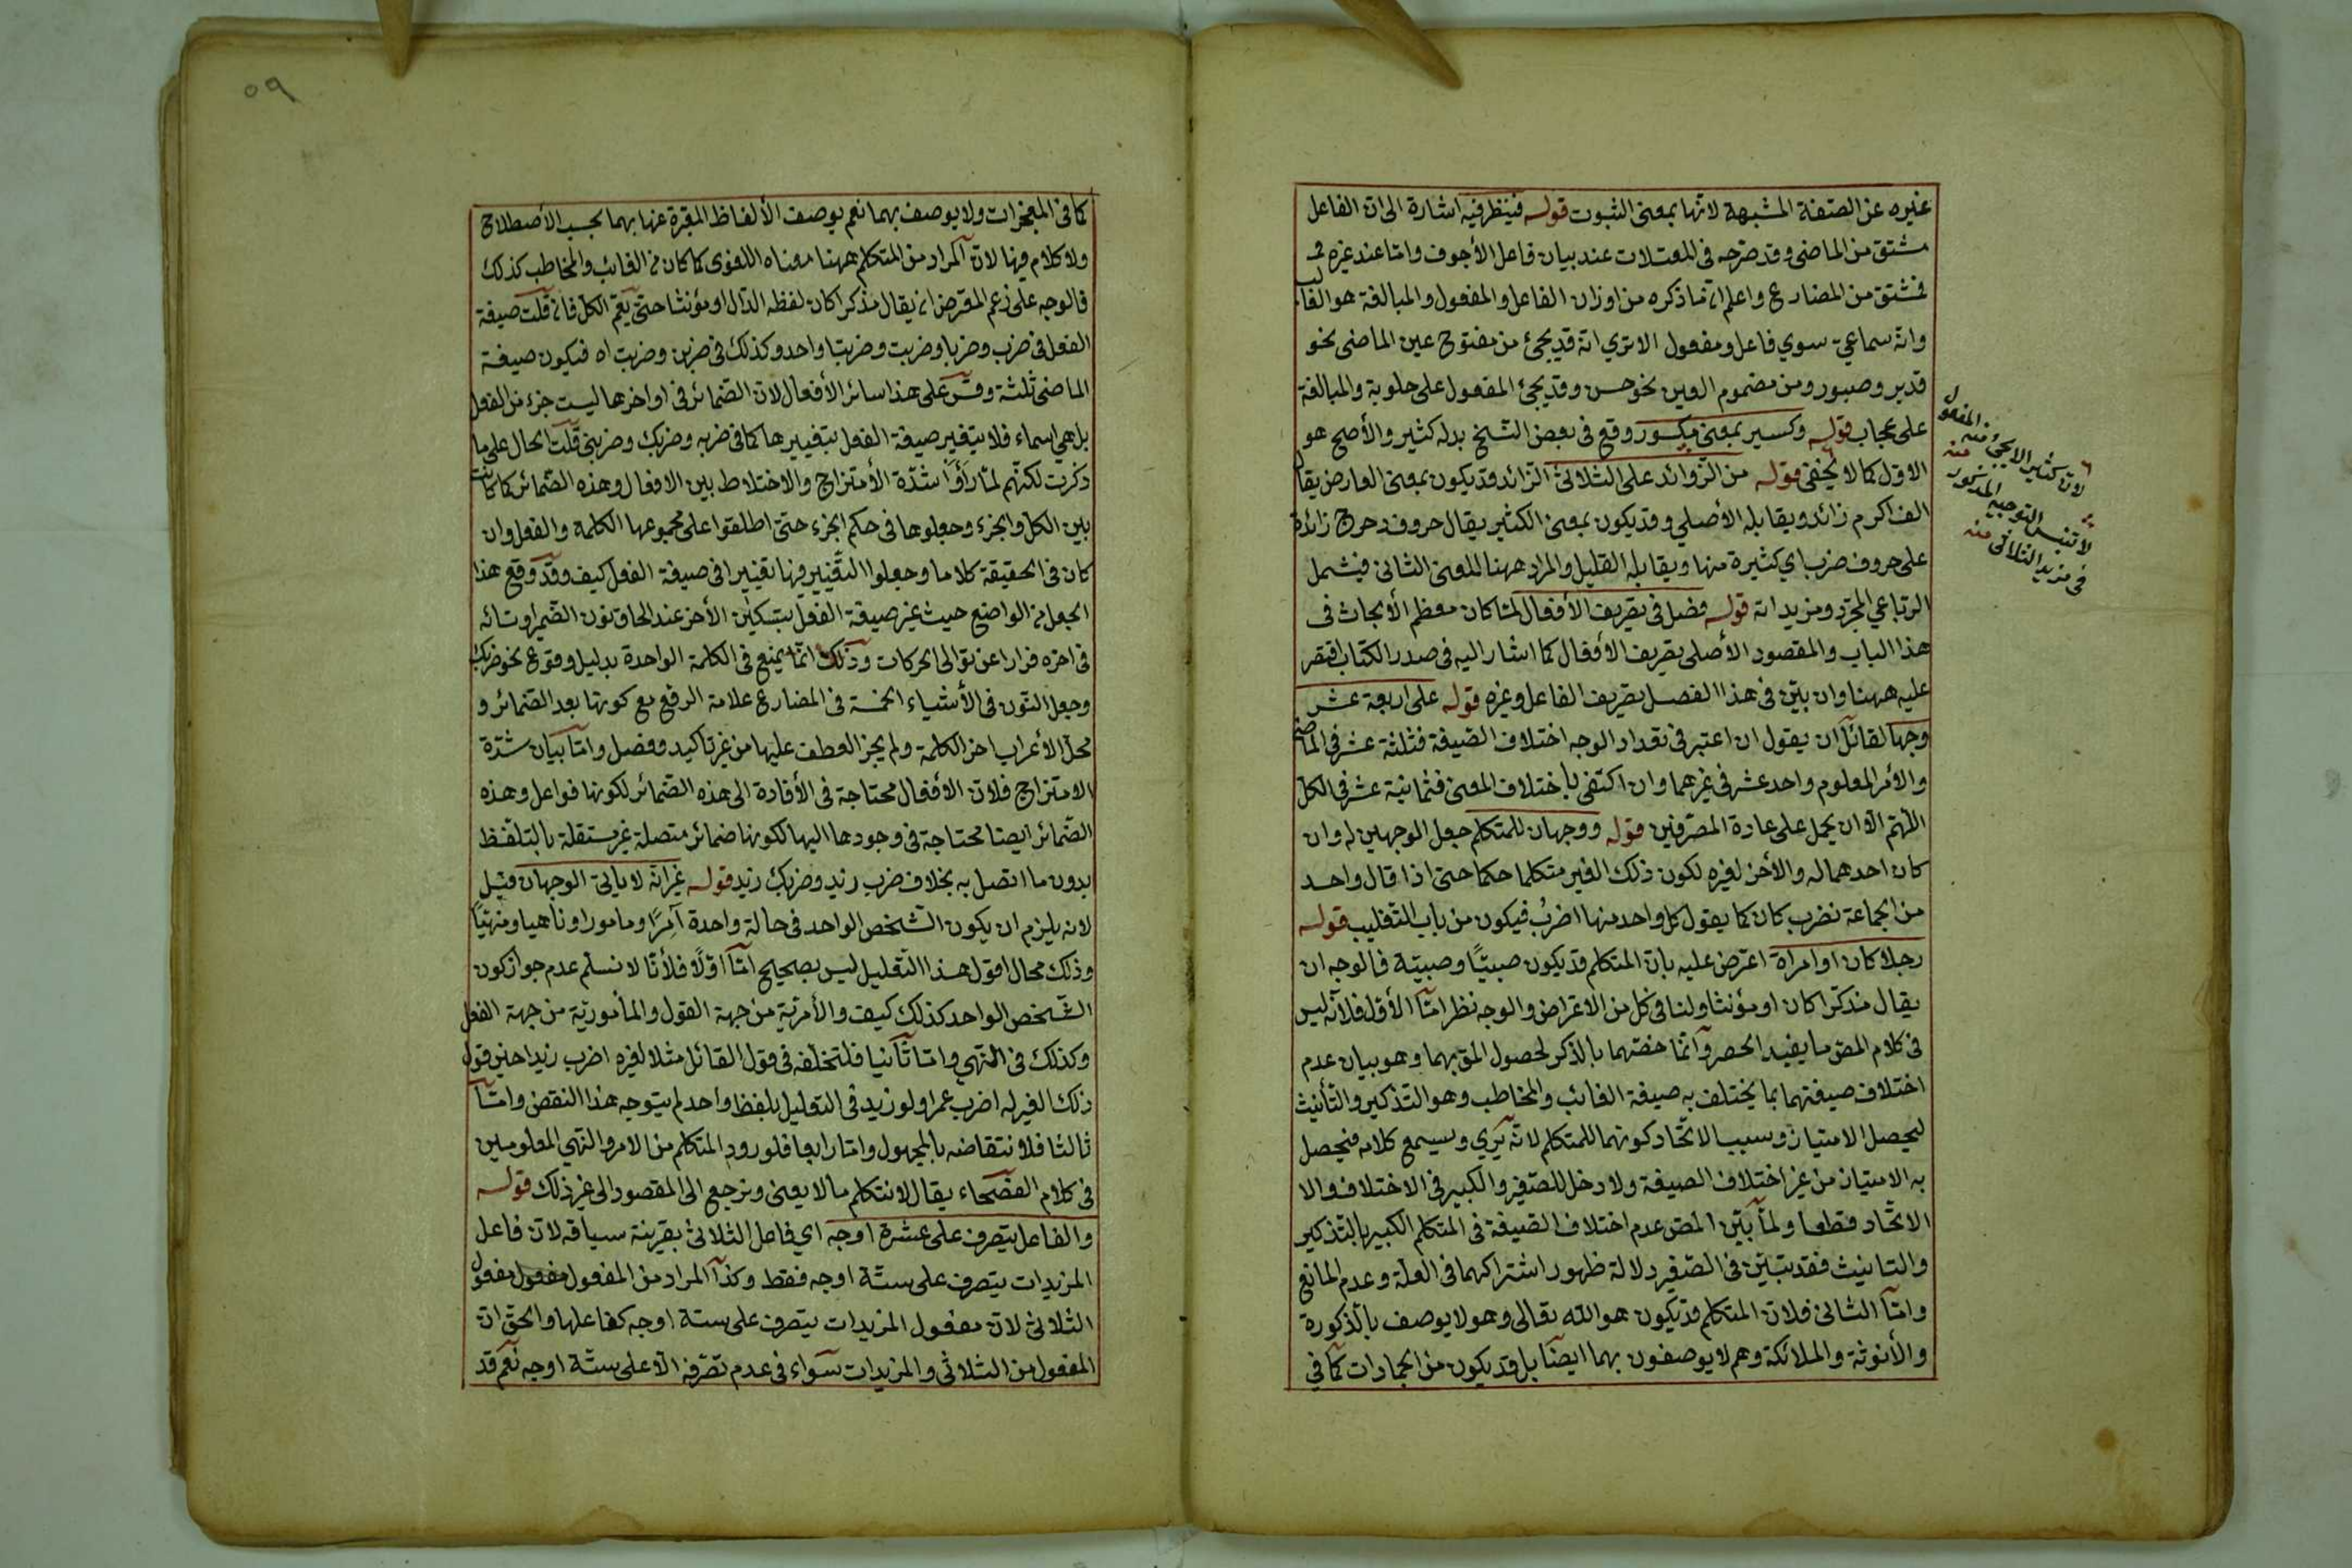 غيره عن الصفة المشبهة لانها بمعنى الثبوت قوله فينظر فيه اشارة الى ان الفاعل
مشتق من الماضى وقد صرّحه فى المعتلات عند بيان فاعل الأجوف وامّا عند غيره
فمشتق من المضارع واعلم ان ما ذكره من اوزان الفاعل والمفعول والمبالغة هو الغالب
وانه سماعيّ سوي فاعل ومفعول الا ترى انه قد يجئ من مفتوح عين الماضى نحو
قدير وصبور ومن مضموم العين نحو حسن وقد يجئ المفعول على حلوبة والمبالغة
على عجاب قوله وكسير بمعنى مكسور وقع فى بعض النسخ بدله كثير والأصح هو
الاول كما لا يخفى قوله من الزوائد على الثلاثى الزائد قد يكون بمعنى العارض يقال
الف اكرم زائد ويقابله الأصلي وقد يكون بمعنى الكثير يقال حروف دحرج زائدة
على حروف ضرب اي كثيرة منها ويقابله القليل والمراد ههنا المعنى الثانى فيشمل
الرباعي المجرّد ومزيداته قوله فصل فى تصريف الأفعال لمّا كان معظم الأبحاث فى
هذا الباب والمقصود الأصلى تصريف الأفعال كما اشار اليه فى صدر الكتاب اقتصر
عليه ههنا وان بيّن فى هذا الفصل تصريف الفاعل وغيره قوله على اربعة عشر
وجها لقائل ان يقول ان اعتبر فى تعداد الوجه اختلاف الصيغة فثلثة عشر فى الماضى
والأمر المعلوم واحد عشر فى غيرهما وان اكتفى باختلاف المعنى فثمانية عشر فى الكلّ
اللّهم الّا ان يحمل على عادة المصرّفين قوله ووجهان للمتكلم جعل الوجهين له وان
كان احدهما له والأخر لغيره لكون ذلك الغير متكلما حكما حتى اذا قال واحد
من الجماعة نضرب كان كما يقول كل واحد منها اضربُ فيكون من باب التغليب قوله
رجلا كان او امرأة اعترض عليه بان المتكلم قد يكون صبيّا وصبيّة فالوجه ان
يقال مذكّرا كان او مؤنثا ولنا فى كل من الاعتراض والوجه نظر امّا الأوّل فلأنه ليس
فى كلام المص ما يفيد الحصر وانّما خصّهما بالذكر لحصول المق بهما وهو بيان عدم
اختلاف صيغتهما بما يختلف به صيغة الغائب والمخاطب وهو التذكير والتأنيث
ليحصل الامتياز وسبب الاتّحاد كونهما للمتكلم لانّه يُرى ويسمع كلامه فيحصل
به الامتياز من غير اختلاف الصيغة ولا دخل للصّغير والكبير فى الاختلاف والا
الاتّحاد قطعا ولمّا بيّن المص عدم اختلاف الصيغة فى المتكلم الكبير بالتذكير
والتانيث فقد تبيّن فى الصّغير دلالة ظهور اشتراكهما فى العلّة وعدم المانع
وامّا الثانى فلان المتكلم قد يكون هو الله تعالى وهو لا يوصف بالذكورة
والأنوثة والملائكة وهم لا يوصفون بهما ايضا بل قد يكون من الجمادات كما فى
لان كثير لا يجئ منه المفعول منه
لا تنس التوجيه المذكور
فى مزيد الثلاثى منه
٥٩
كما فى المعجزات ولا يوصف بهما نعم يوصف الألفاظ المعبّرة عنها بهما بحسب الأصطلاح
ولا كلام فيها لان المراد من المتكلم ههنا معناه اللغوى كما كان فى الغائب والمخاطب كذلك
فالوجه على زعم المعترض ان يقال مذكرا كان لفظه الدّال او مؤنثا حتى يعمّ الكل فان قلت صيغة
الفعل فى ضرب وضربا وضربت وضربتا واحد وكذلك فى ضربن وضربت اه فيكون صيغة
الماضى ثلثة وقس على هذا سائر الأفعال لان الضّمائر فى اواخرها ليست جزء من الفعل
بل هى اسماء فلا يتغير صيغة الفعل بتغييرها كما فى ضربه وضربك وضربنى قلت الحال على ما
ذكرت لكنّهم لمّا رَأَوْا شدّة الأمتزاج والاختلاط بين الافعال وهذه الضّمائر كما كانت
بين الكل والجزء وجعلوها فى حكم الجزء حتّى اطلقوا على مجموعها الكلمة والفعل وان
كان فى الحقيقة كلاما وجعلوا التّغيير فيها تغييرا فى صيغة الفعل كيف وقد وقع هذا
الجعل من الواضع حيث غيّر صيغة الفعل بتسكين الأخر عند الحاق نون الضّمير او تائه
فى اخره فرارا عن توالى الحركات وذلك انّما يمنع فى الكلمة الواحدة بدليل وقوع نحو ضربك
وجعل النّون فى الأشياء الخمسة فى المضارع علامة الرفع مع كونها بعد الضّمائر و
محلّ الأعراب اخر الكلمة ولم يجز العطف عليها من غير تأكيد وفصل وامّا بيان شدّة
الامتزاج فلان الأفعال محتاجة فى الأفادة الى هذه الضّمائر لكونها فواعل وهذه
الضّمائر ايضا محتاجة فى وجودها اليها لكونها ضمائر متصلة غير مستقلة بالتلفّظ
بدون ما اتصل به بخلاف ضرب زيد وضربك زيد قوله غير انّه لا يأتى الوجهان قيل
لانه يلزم ان يكون الشّخص الواحد فى حالة واحدة آمِرًا ومامورا وناهيا ومنهيّا
وذلك محال اقول هذا التعليل ليس بصحيح امّا اوّلًا فلأنّا لا نسلّم عدم جواز كون
الشّخص الواحد كذلك كيف والأمريّة من جهة القول والمأموريّة من جهة الفعل
وكذلك فى النّهي وامّا ثانيا فلتخلّفه فى قول القائل مثلا لغيره اضرب زيدا حين قول
ذلك الغير له اضرب عمرا ولو زيد فى التعليل بلفظ واحد لم يتوجه هذا النقض وامّا
ثالثا فلانتقاضه بالمجهول وامّا رابعا فلورود المتكلم من الامر والنّهي المعلومين
فى كلام الفصحاء يقال لا نتكلم ما لا يعنى ونرجع الى المقصود الى غير ذلك قوله
والفاعل يتصرف على عشرة اوجه اي فاعل الثلاثى بقرينة سياقه لان فاعل
المزيدات يتصرف على ستّة اوجه فقط وكذا المراد من المفعول مفعول
الثلاثى لان مفعول المزيدات يتصرف على ستة اوجه كفاعلها والحق ان
المفعول من الثلاثى والمزيدات سواء فى عدم تصرّفه الّا على ستّة اوجه نعم قد